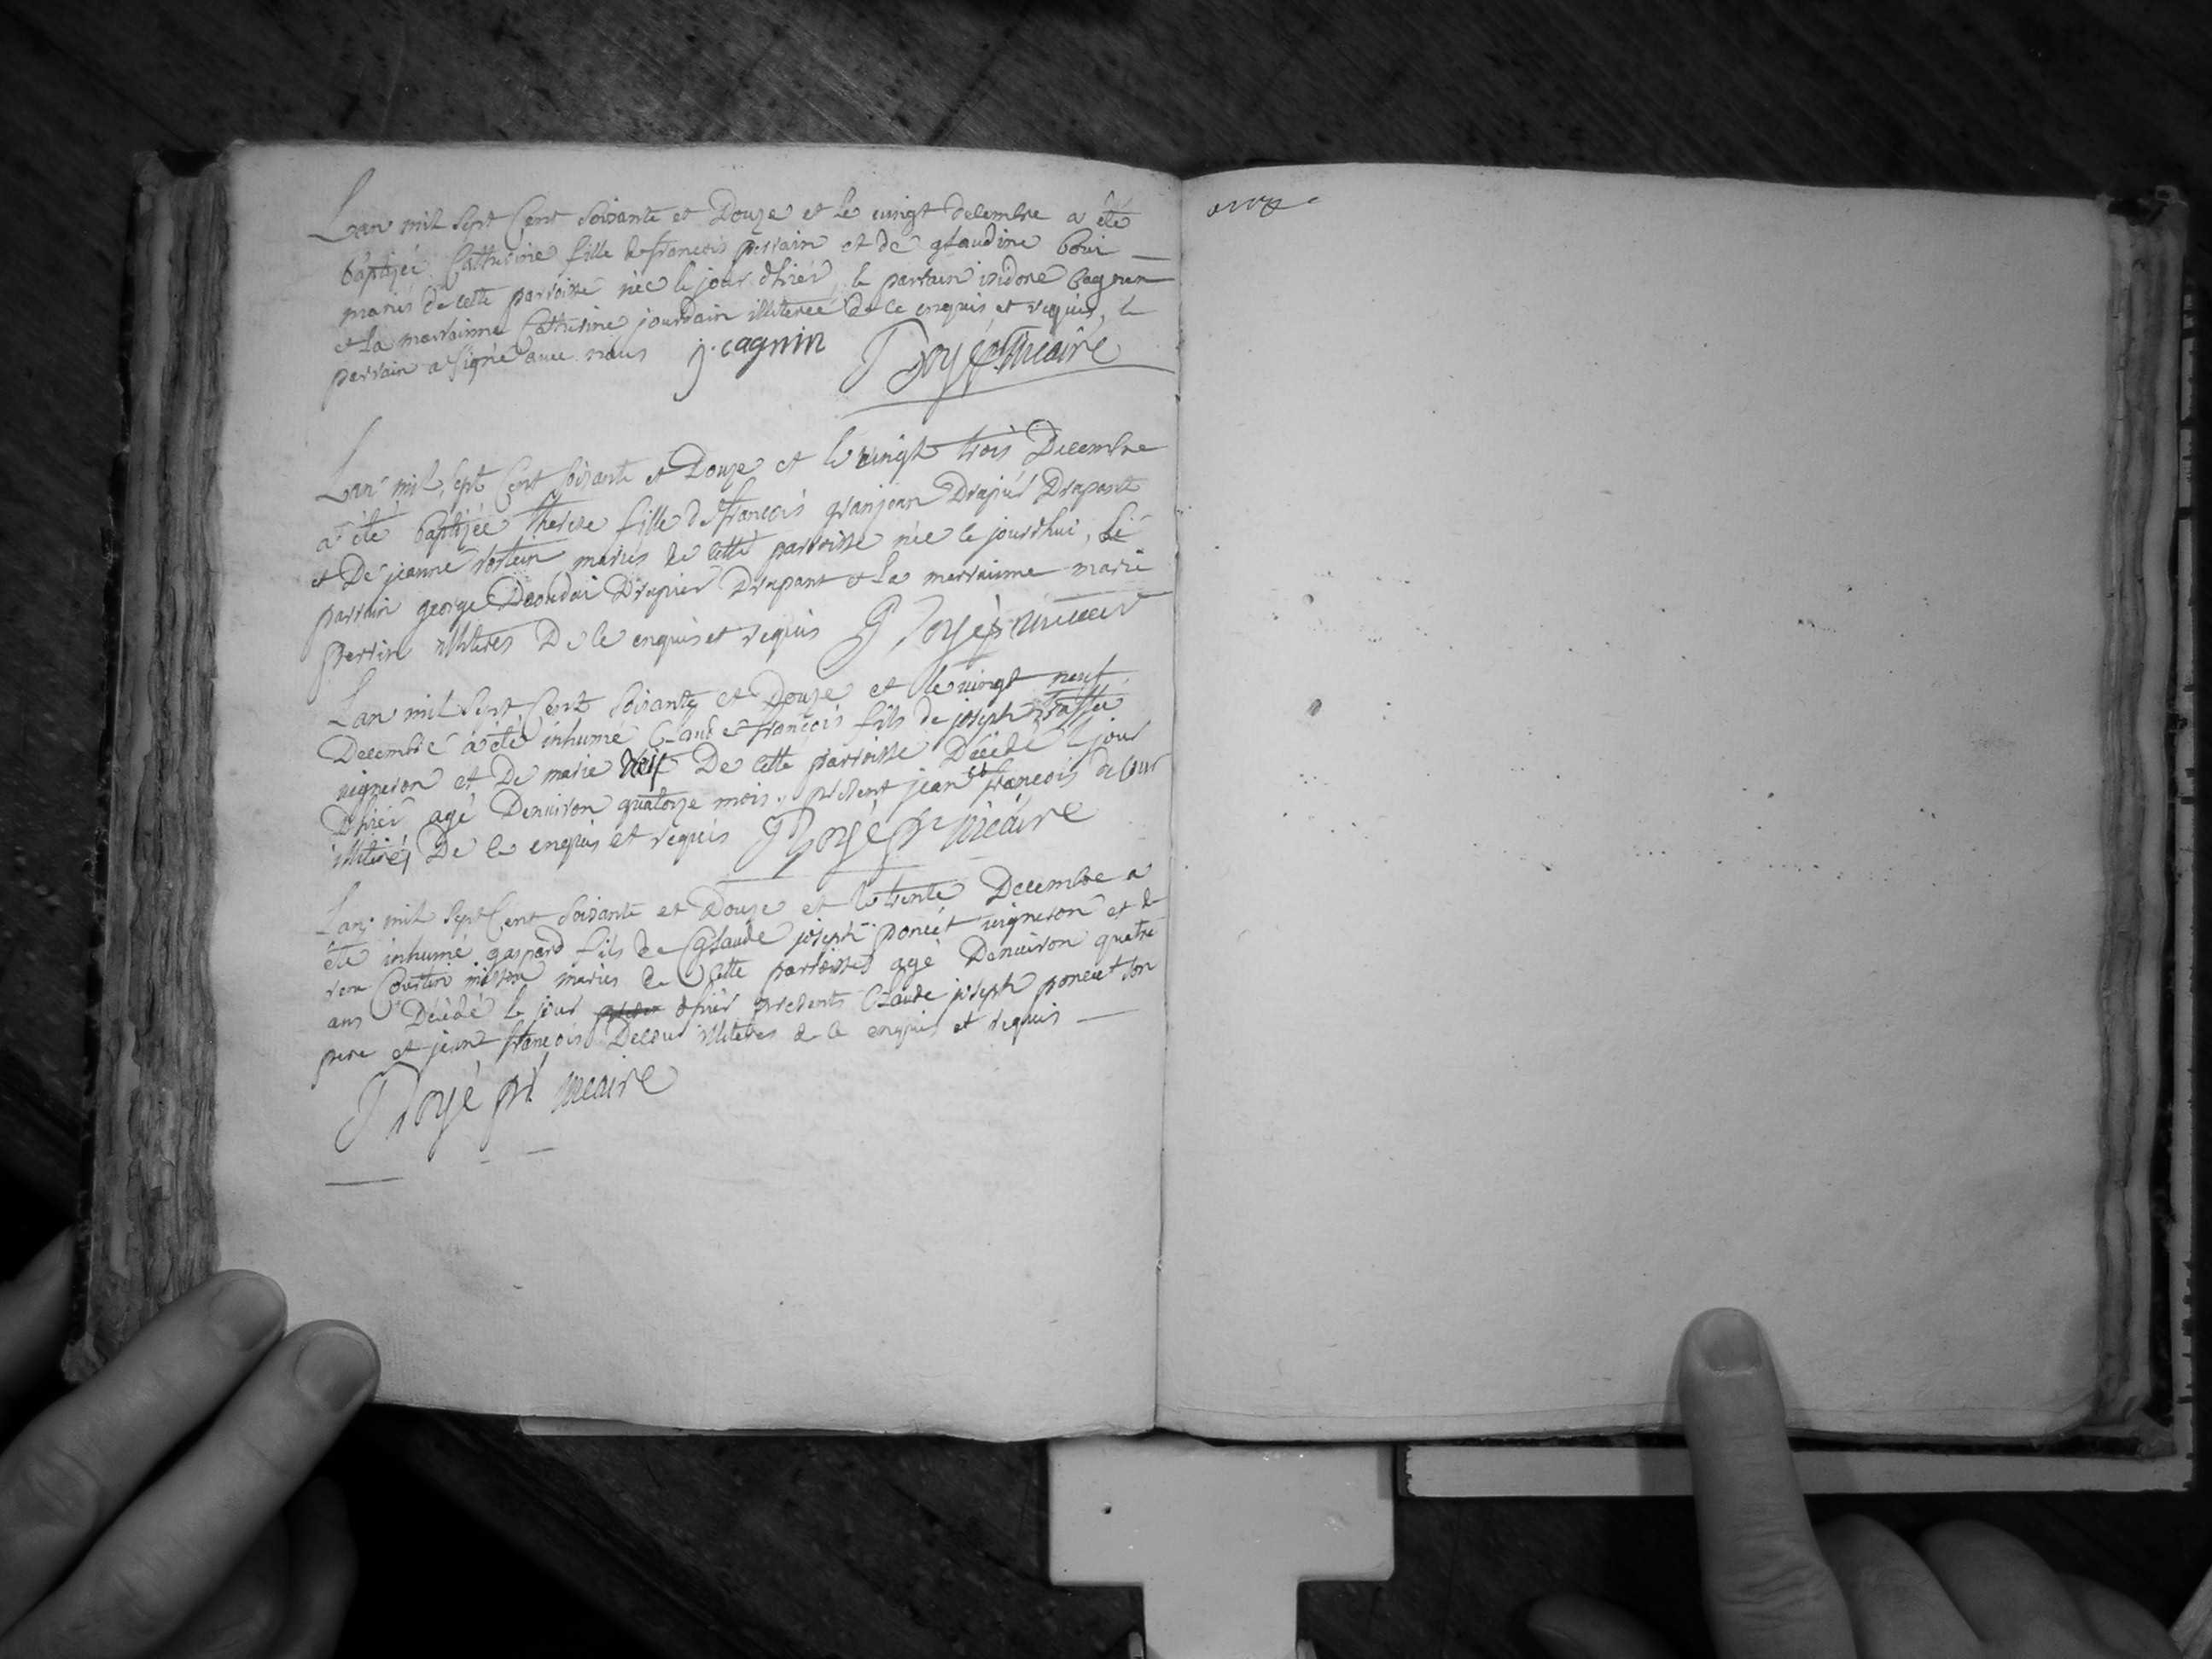 Lan mil sept Cent soixante et Douze et le vingt decembre a été
baptizée Catherine fille de francois perrain et de glaudine boui
mariés de cette parroisse née le jour d'hier, le parrain isidore Cagnin
et La marrainne Catherine jourdain illiterée de ce enquis et requis, le
parrain a signé avec nous j. cagnin Royé ptre vicaire
Lan mil sept Cent soixante et Douze et le vingt trois Decembre
a été baptizée therese fille de francois granjean Drapier Drapant
et De jeanne mariés de cette parroisse née le jourdhui, Le
parrain george Drapier Drapant et La marrainne marie
perrin illiteres De ce enquis et requis Royé ptre vicaire
Lan mil sept Cent soixante et Douze et le vingt neuf
Decembre a été inhumé Claude francois fils de joseph
vigneron et De marie De cette parroisse Décédé le jour
D'hier agé Denviron quatorze mois, présent jean francois decour
illiterés De ce enquis et requis Royé ptre vicaire
Lan mil sept Cent soixante et Douze et le trente Decembre a
été inhumé gaspard fils de Claude joseph poncet vigneron et de
mariés de Cette parroisse agé Denviron quatre
ans Décédé le jour d'hier presents Claude joseph poncet son
pere et jean francois Decour illiteres de ce enquis et requis
Royé ptre vicaire